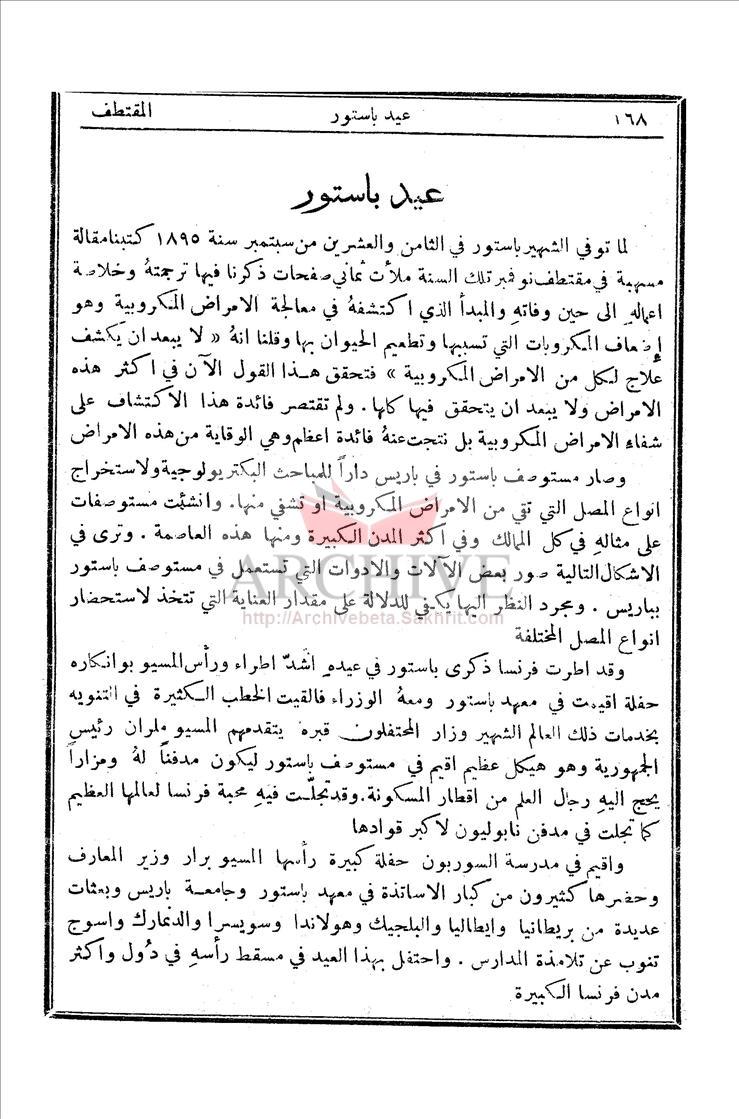 ١٦٨ عيد باستور المقتطف
عيد باستور
لما توفي الشهير باستور في الثامن والعشرين من سبتمبر سنة ١٨٩٥ كتبنا مقالة
مسهبة في مقتطف نوفمبر تلك السنة ملأت ثماني صفحات ذكرنا فيها ترجمتهُ وخلاصة
اعمالهِ الى حين وفاتهِ والمبدأ الذي اكتشفهُ في معالجة الامراض المكروبية وهو
إضعاف المكروبات التي تسببها وتطعيم الحيوان بها وقلنا انهُ « لا يبعد ان يكشف
علاج لكل من الامراض المكروبية » فتحقق هذا القول الآن في اكثر هذه
الامراض ولا يبعد ان يتحقق فيها كلها . ولم تقتصر فائدة هذا الاكتشاف على
شفاء الامراض المكروبية بل نتجت عنهُ فائدة اعظم وهي الوقاية من هذه الامراض
وصار مستوصف باستور في باريس داراً للمباحث البكتريولوجية ولاستخراج
انواع المصل التي تقي من الامراض المكروبية او تشفي منها . وانشئت مستوصفات
على مثالهِ في كل الممالك وفي اكثر المدن الكبيرة ومنها هذه العاصمة . وترى في
الاشكال التالية صور بعض الآلات والادوات التي تستعمل في مستوصف باستور
بباريس . ومجرد النظر اليها يكفي للدلالة على مقدار العناية التي تتخذ لاستحضار
انواع المصل المختلفة
وقد اطرت فرنسا ذكرى باستور في عيدهِ اشدّ اطراء ورأس المسيو بوانكاره
حفلة اقيمت في معهد باستور ومعهُ الوزراء فالقيت الخطب الكثيرة في التنويه
بخدمات ذلك العالم الشهير وزار المحتفلون قبره يتقدمهم المسيو ملران رئيس
الجمهورية وهو هيكل عظيم اقيم في مستوصف باستور ليكون مدفناً لهُ ومزاراً
يحج اليهِ رجال العلم من اقطار المسكونة . وقد تجلّت فيهِ محبة فرنسا لعالمها العظيم
كما تجلت في مدفن نابوليون لاكبر قوادها
واقيم في مدرسة السوربون حفلة كبيرة رأسها المسيو برار وزير المعارف
وحضرها كثيرون من كبار الاساتذة في معهد باستور وجامعة باريس وبعثات
عديدة من بريطانيا وايطاليا والبلجيك وهولاندا وسويسرا والدنمارك واسوج
تنوب عن تلامذة المدارس . واحتفل بهذا العيد في مسقط رأسهِ في دُول واكثر
مدن فرنسا الكبيرة
ARCHIVE
http://Archivebeta.Sakhrit.com